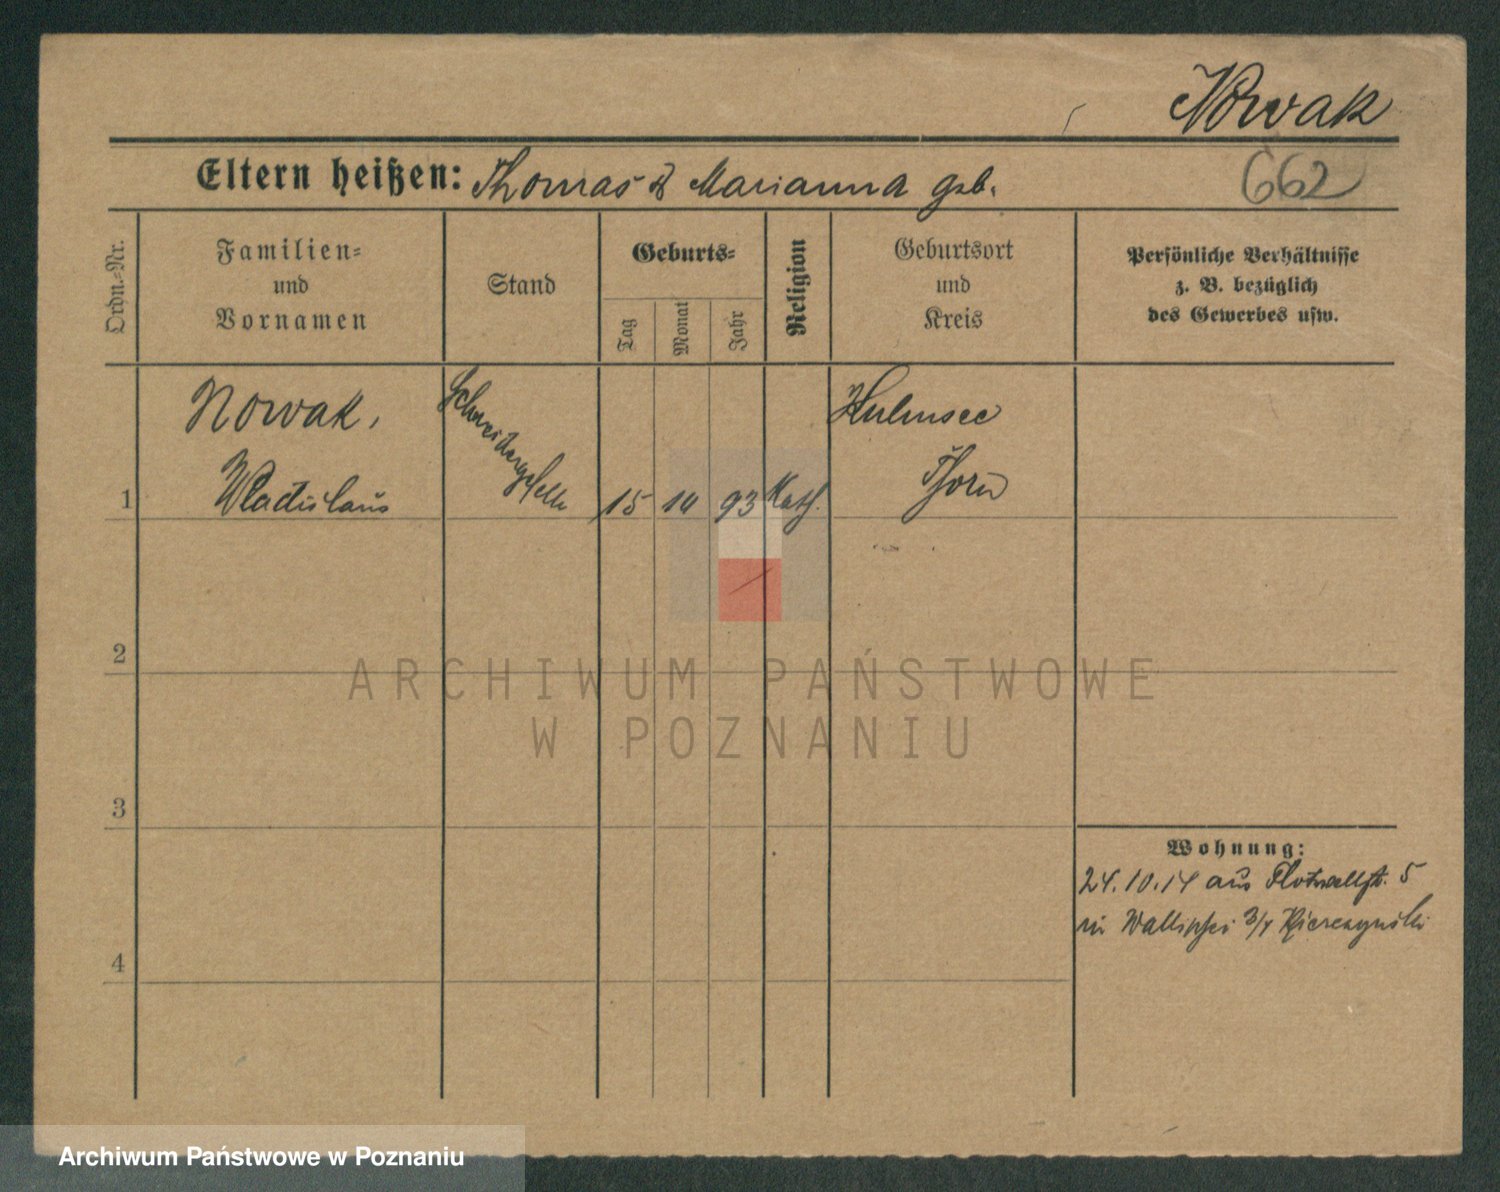 Nowak
662
Eltern heißen: Thomas & Marianna geb.
Ordn.-Nr.
Familien-
und
Vornamen
Stand
Geburts-
Tag
Monat
Jahr
Religion
Geburtsort
und
Kreis
Persönliche Verhältnisse
z. B. bezüglich
des Gewerbes usw.
1
Nowak,
Wladislaus
Schneidergeselle
15
10
93
Kath.
Kulmsee
Thorn
2
3
4
Wohnung:
24.10.14 aus Flotwellstr. 5
in Wallischei 3/4
ARCHIWUM PAŃSTWOWE
W POZNANIU
Archiwum Państwowe w Poznaniu